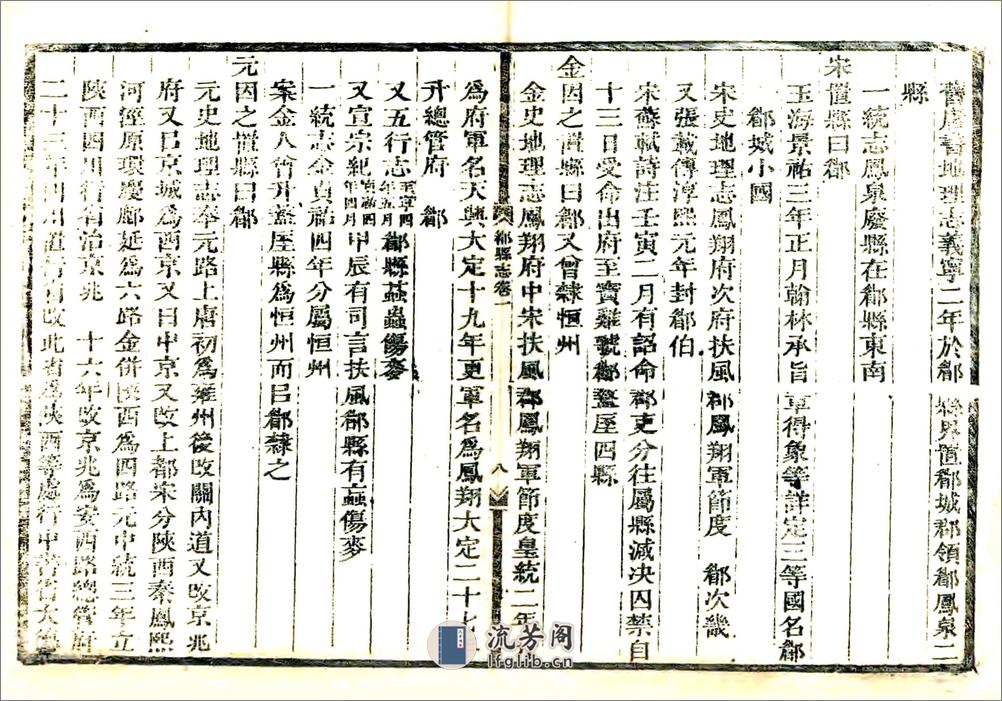 舊唐書地理志義寧二年於郿縣界置郿城郡領郿鳳泉二
縣
一統志鳳泉廢縣在郿縣東南
宋置縣曰郿
玉海景祐三年正月翰林承旨章得象等詳定三等國名郿
郿城小國
宋史地理志鳳翔府次府扶風郡鳳翔軍節度 郿次畿
又張載傳淳熙元年封郿伯
宋蘇軾詩注壬寅二月有詔命郡吏分往屬縣減決囚禁自
十三日受命出府至寶雞虢郿盩厔四縣
金因之置縣曰郿又曾隸恒州
金史地理志鳳翔府中宋扶風郡鳳翔軍節度皇統二年
郿縣志卷一
八
為府軍名天興大定十九年更軍名為鳳翔大定二十七
升總管府 郿
又五行志 郿縣蝱蟲傷麥
又宣宗紀 甲辰有司言扶風郿縣有蟲傷麥
一統志金貞祐四年分屬恒州
案金人曾升盩厔縣為恒州而㠯郿隸之
元因之置縣曰郿
元史地理志奉元路上唐初為雍州後改關內道又改京兆
府又㠯京城為西京又曰中京又改上都宋分陝西秦鳳熙
河涇原環慶鄜延為六路金併陝西為四路元中統三年立
陝西四川行省治京兆 十六年改京兆為安西路總管府
二十三年四川置行省改此省為陝西等處行中書省大德
流芳阁
lfglib.cn